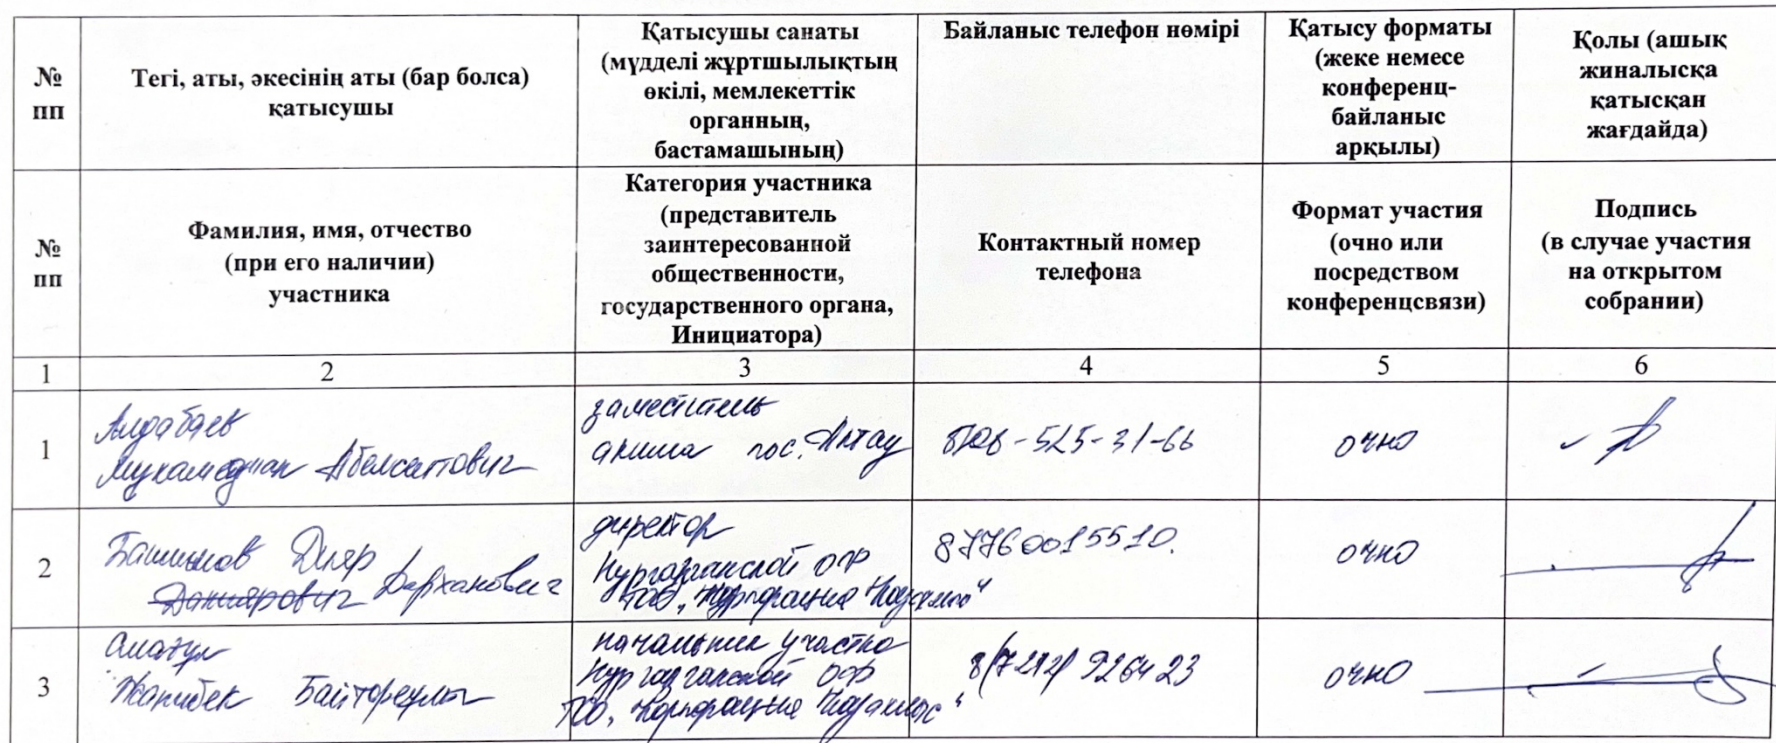 № пп
Тегі, аты, әкесінің аты (бар болса)
қатысушы
Қатысушы санаты
(мүдделі жұртшылықтың
өкілі, мемлекеттік
органның,
бастамашының)
Байланыс телефон нөмірі
Қатысу форматы
(жеке немесе
конференц-
байланыс
арқылы)
Қолы (ашық
жиналысқа
қатысқан
жағдайда)
№ пп
Фамилия, имя, отчество
(при его наличии)
участника
Категория участника
(представитель
заинтересованной
общественности,
государственного органа,
Инициатора)
Контактный номер
телефона
Формат участия
(очно или
посредством
конференцсвязи)
Подпись
(в случае участия
на открытом
собрании)
1 2 3 4 5 6
1
Алдабаев
Мухамеджан
заместитель
акима пос. Актау
525-31-66
очно
2
Дияр
Дарханович
директор
Нурказганской ОФ
ТОО "Корпорация Казахмыс"
87760015510.
очно
3
Жанибек Байтореулы
начальник участка
Нурказганской ОФ
ТОО "Корпорация Казахмыс"
8(7212) 926423
очно